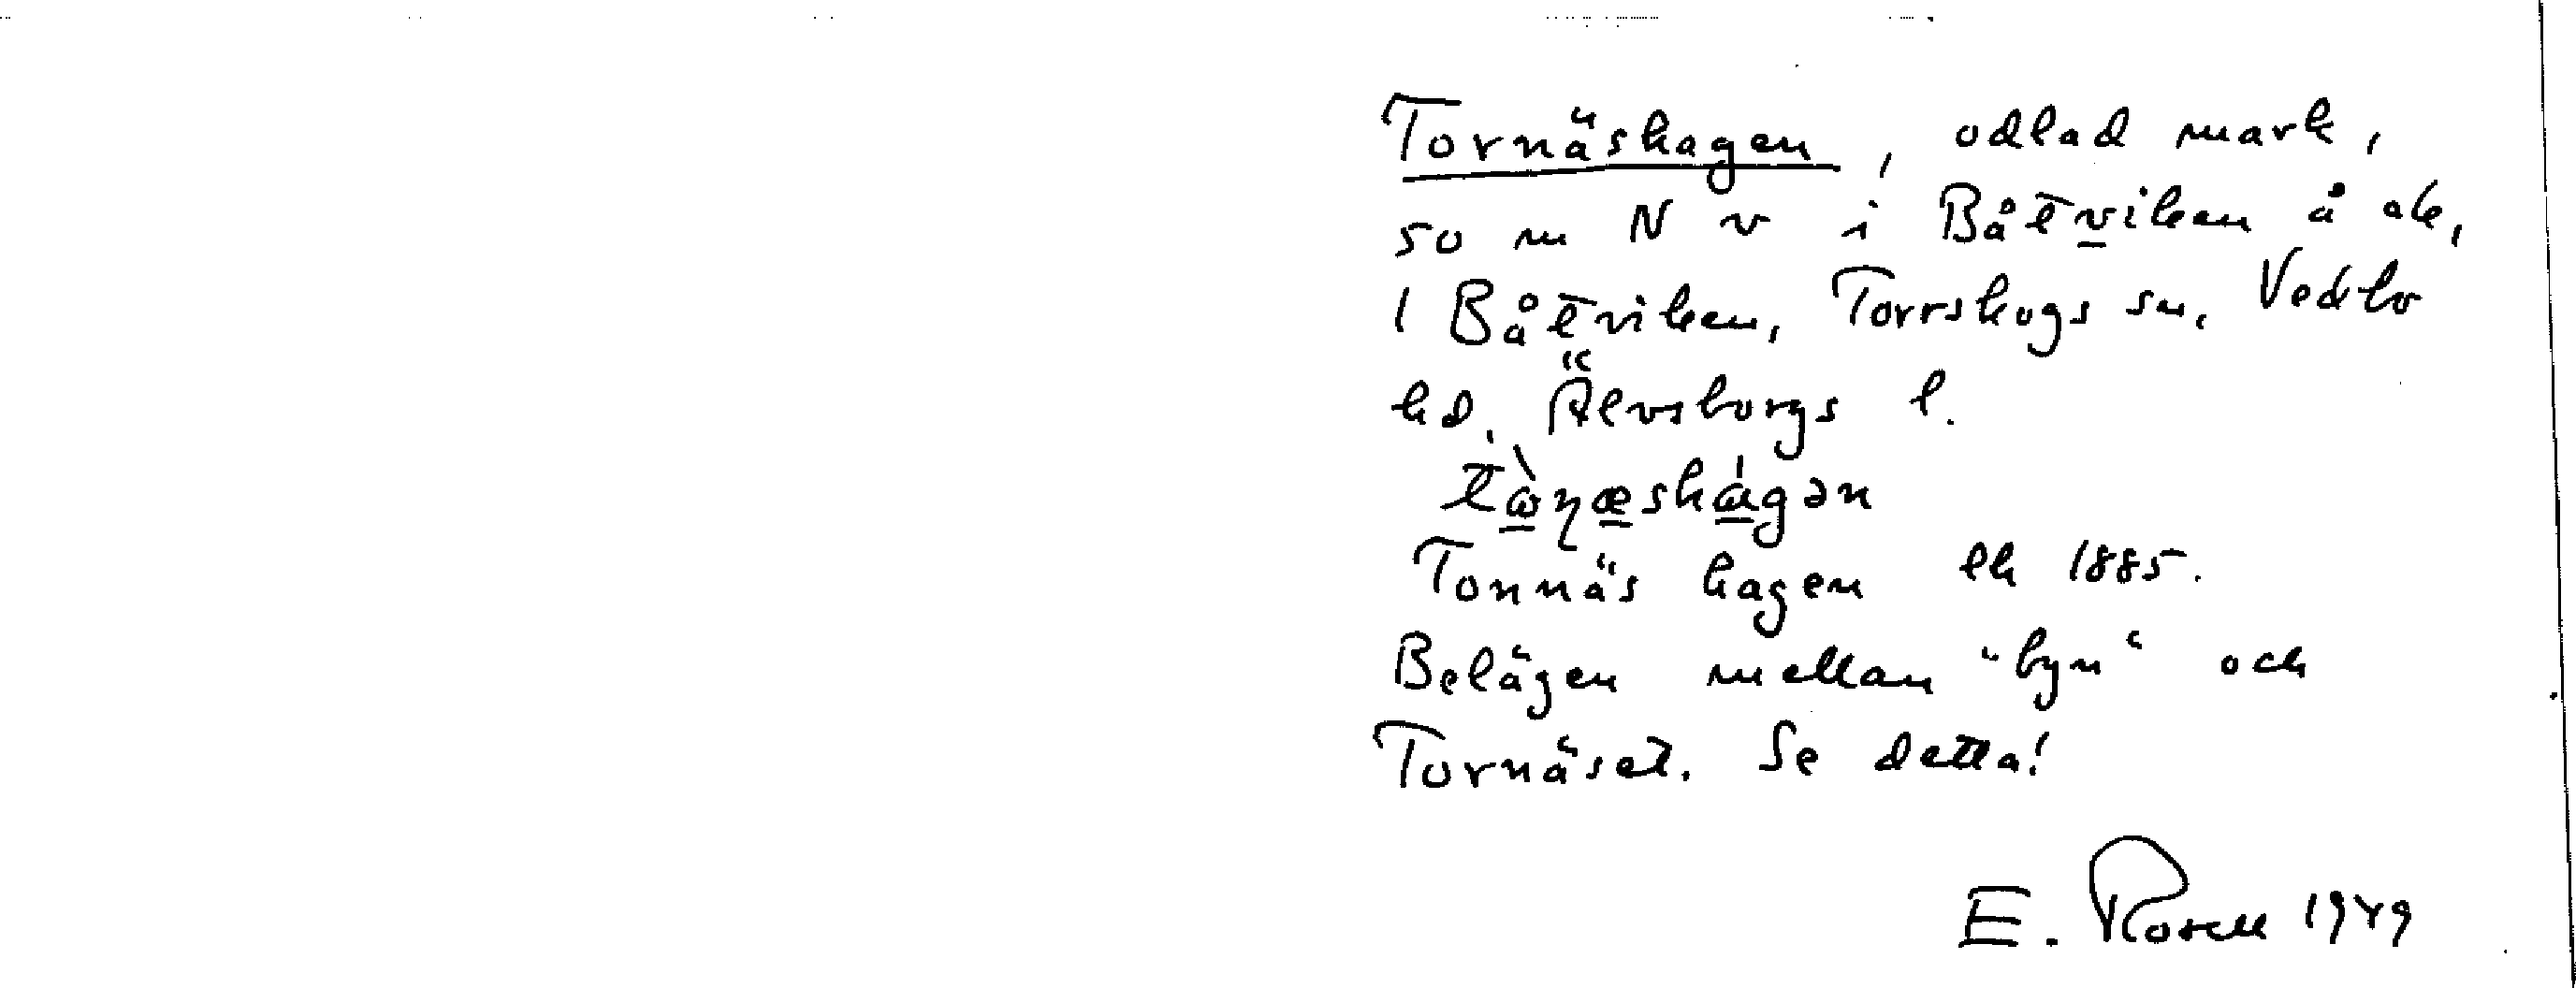 Tornäshagen, odlad mark,
so m N v i Båtviken å ek,
1 Båtviken, Torrskogs sn, Vedbo
hd. Älvsborgs l.
tɷ̀ɳæshágən
Tonnäs hagen lk 1885.
Belägen mellan "byn" och
Tornäset. Se detta!
E. Rosell 1949